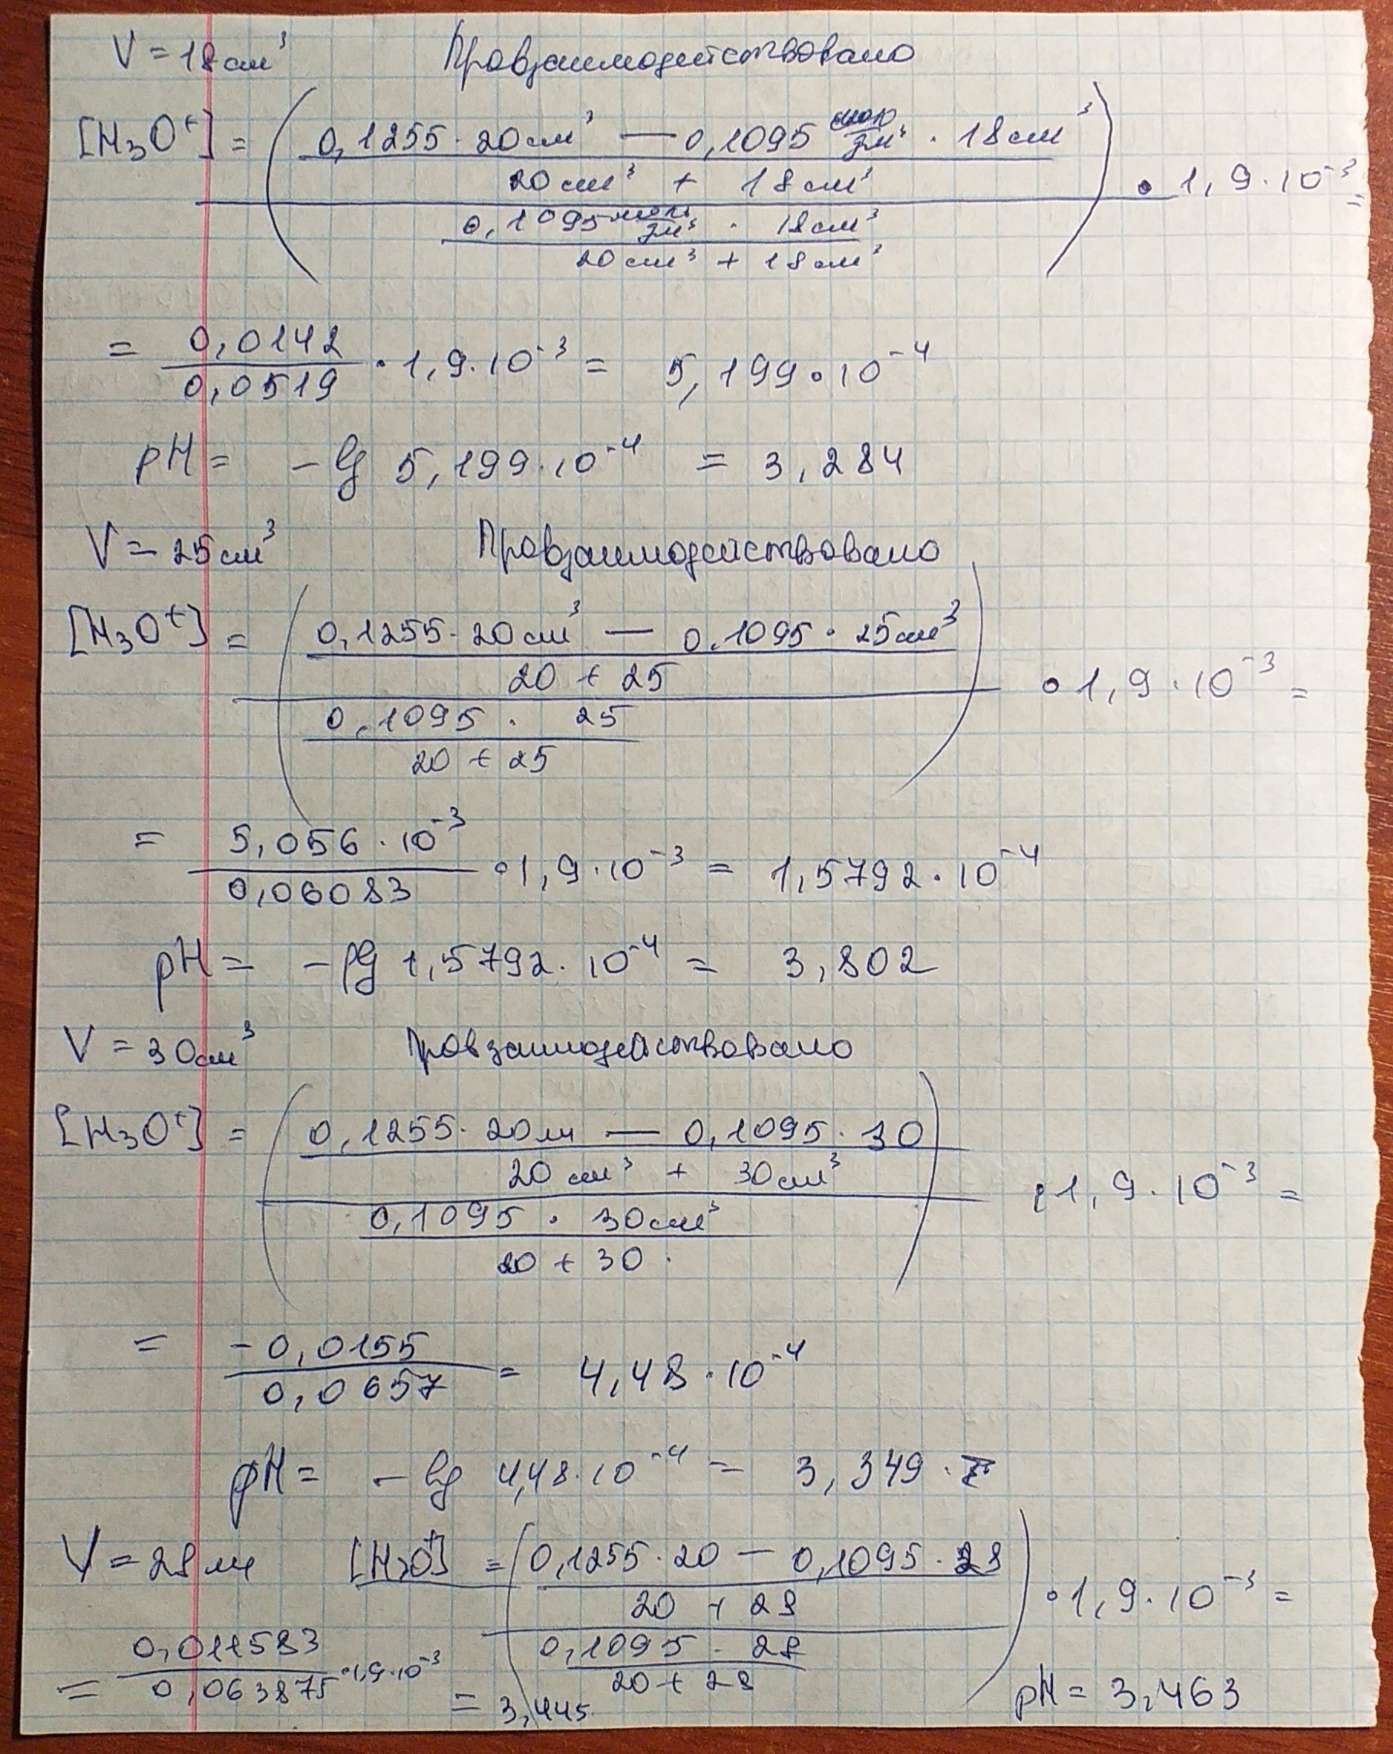 V = 18 см³ Провзаимодействовано
[H₃O⁺] = ( 0,1255 · 20 см³ — 0,1095 моль/дм³ · 18 см³ / 20 см³ + 18 см³ / 0,1095 моль/дм³ · 18 см³ / 20 см³ + 18 см³ ) · 1,9 · 10⁻³ =
= 0,0142 / 0,0519 · 1,9 · 10⁻³ = 5,199 · 10⁻⁴
pH = – lg 5,199 · 10⁻⁴ = 3,284
V = 25 см³ Провзаимодействовано
[H₃O⁺] = ( 0,1255 · 20 см³ — 0,1095 · 25 см³ / 20 + 25 / 0,1095 · 25 / 20 + 25 ) · 1,9 · 10⁻³ =
= 5,056 · 10⁻³ / 0,06083 · 1,9 · 10⁻³ = 1,5792 · 10⁻⁴
pH = – lg 1,5792 · 10⁻⁴ = 3,802
V = 30 см³ Провзаимодействовано
[H₃O⁺] = ( 0,1255 · 20 мл — 0,1095 · 30 / 20 см³ + 30 см³ / 0,1095 · 30 см³ / 20 + 30 ) · 1,9 · 10⁻³ =
= – 0,0155 / 0,0657 = 4,48 · 10⁻⁴
pH = – lg 4,48 · 10⁻⁴ = 3,349
V = 28 мл [H₃O⁺] = ( 0,1255 · 20 – 0,1095 · 28 / 20 + 28 / 0,1095 · 28 / 20 + 28 ) · 1,9 · 10⁻³ =
= 0,011583 / 0,063875 · 1,9 · 10⁻³ = 3,445 pH = 3,463